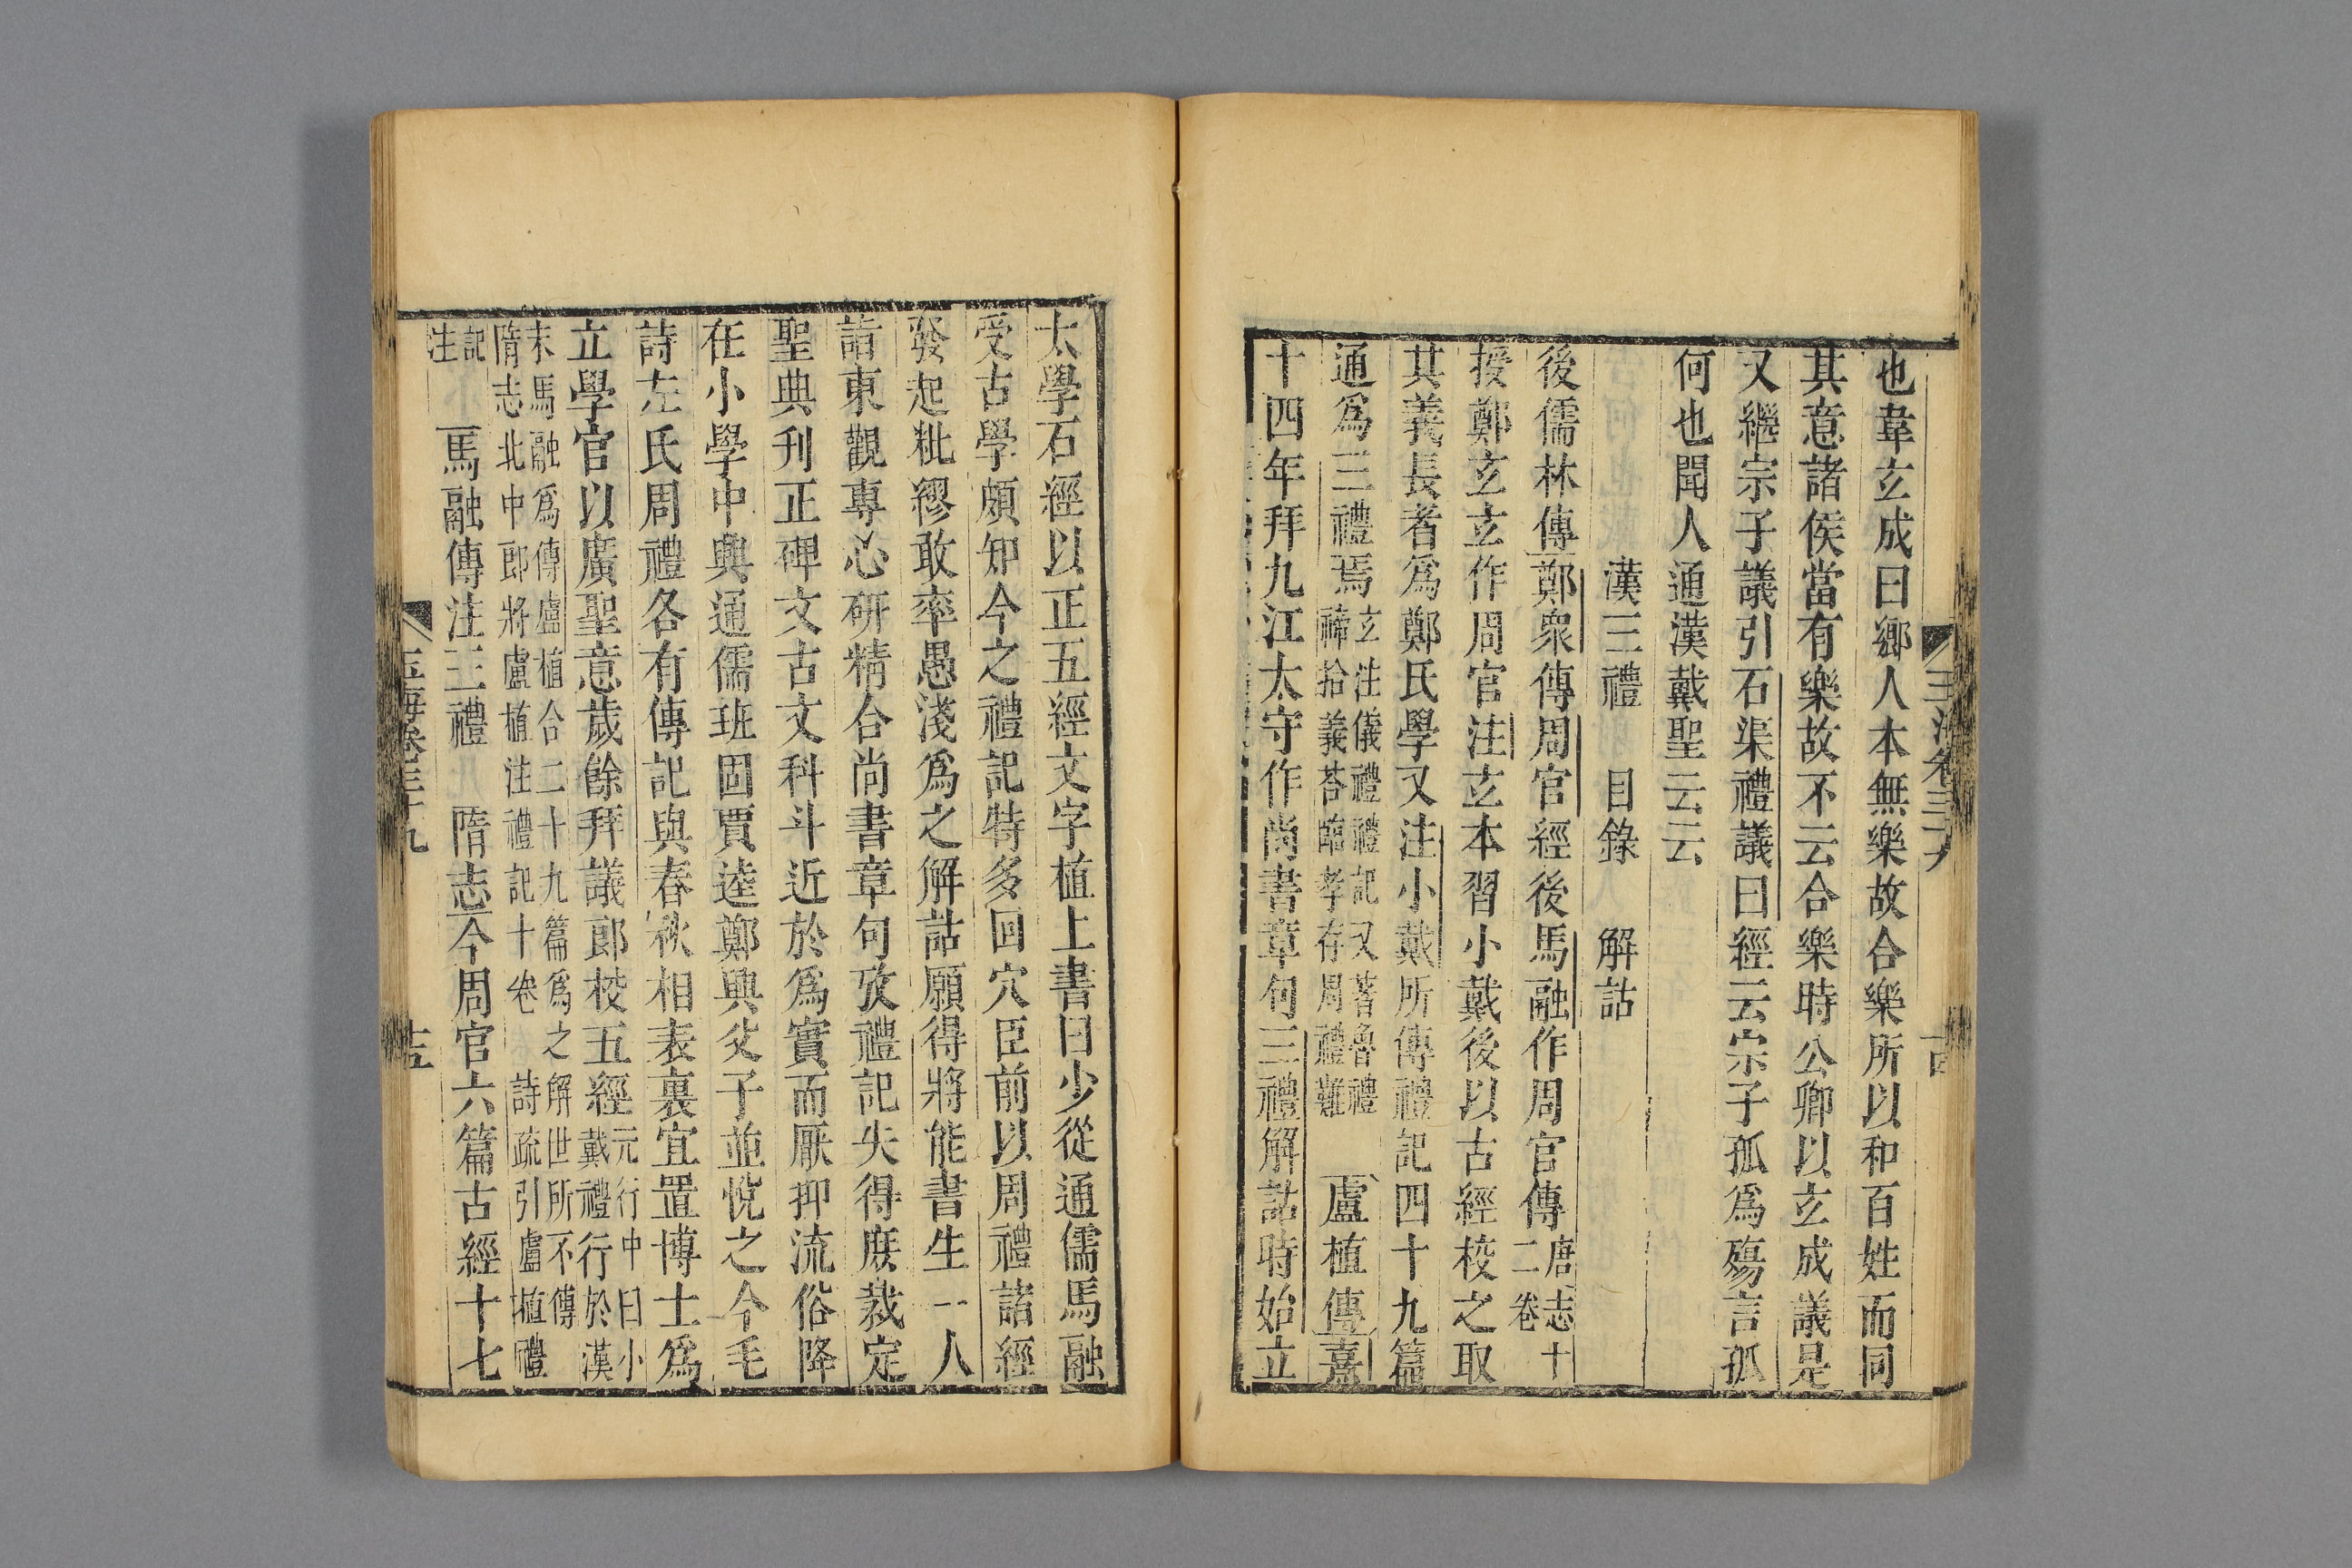 也韋玄成曰鄉人本無樂故合樂所以和百姓而同
其意諸侯當有樂故不云合樂時公卿以玄成議是
又繼宗子議引石渠禮議曰經云宗子孤爲殤言孤
何也聞人通漢戴聖云云
漢三禮 目錄 解詁
後儒林傳鄭衆傳周官經後馬融作周官傳唐志十二卷
授鄭玄玄作周官注玄本習小戴後以古經校之取
其義長者爲鄭氏學又注小戴所傳禮記四十九篇
通爲三禮焉玄注儀禮禮記又著魯禮禘拾義荅臨孝存周禮難 盧植傳熹
十四年拜九江太守作尚書章句三禮解詁時始立
太學石經以正五經文字植上書曰少從通儒馬融
受古學頗知今之禮記特多回穴臣前以周禮諸經
發起粃繆敢率愚淺爲之解詁願得將能書生一人
詣東觀專心研精合尚書章句攷禮記失得庶裁定
聖典刊正碑文古文科斗近於爲實而厭抑流俗降
在小學中興通儒班固賈逵鄭興父子並悅之今毛
詩左氏周禮各有傳記與春秋相表裏宜置博士爲
立學官以廣聖意歲餘拜議郎校五經元行中曰小戴禮行於漢
末馬融爲傳盧植合二十九篇爲之解世所不傳
隋志北中郎將盧植注禮記十卷 詩疏引盧植禮
記注 馬融傳注三禮 隋志今周官六篇古經十七
玉海卷三十九
十五